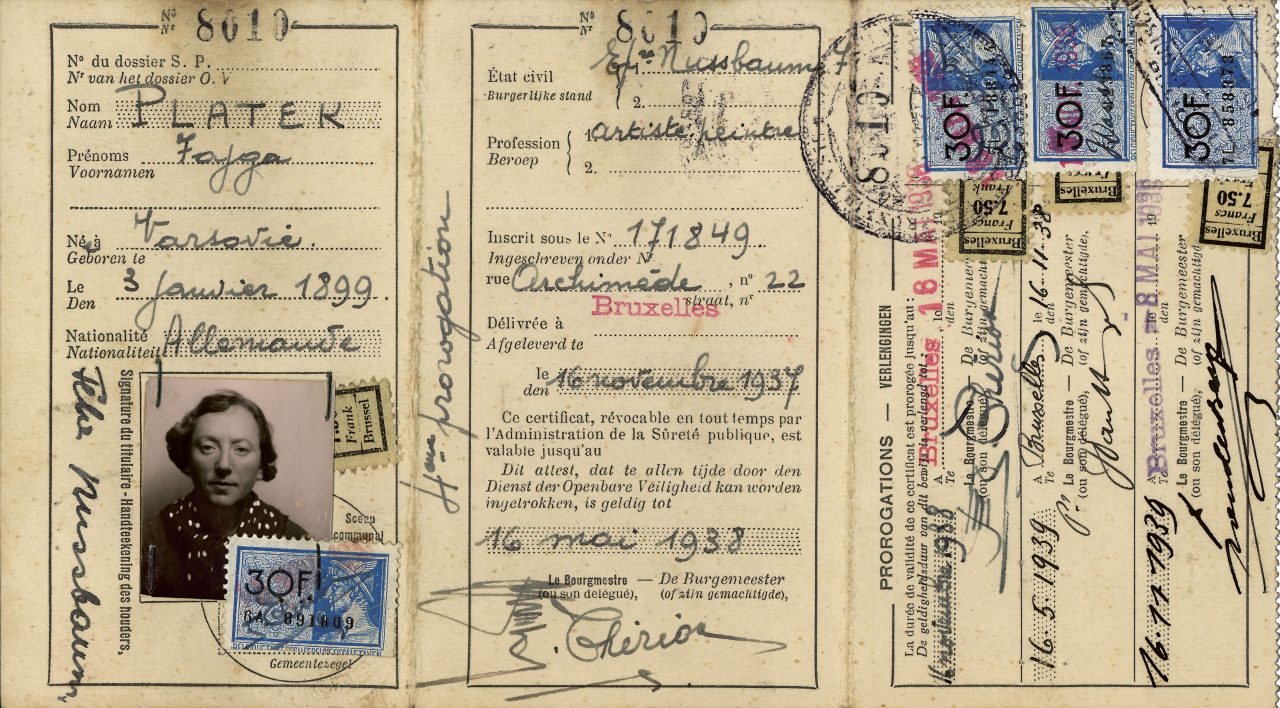 Nº
Nr 8010
Nº du dossier S. P.
Nr van het dossier O. V
Nom
Naam PLATEK
Prénoms
Voornamen Fajga
Né à
Geboren te Varsovie.
Le
Den 3 janvier 1899.
Nationalité
Nationaliteit Allemande
Signature du titulaire - Handteekening des houders,
Felka Nussbaum
Frank
Brussel
Sceau
communal
30F.
891809
Gemeentezegel
4ème prorogation
Nº
Nr 8010
État civil
Burgerlijke stand
1. Nussbaum F
2.
Profession
Beroep
1. artiste peintre
2.
Inscrit sous le Nº
Ingeschreven onder Nr 171849
rue Archimède, nº 22
straat, nr
Bruxelles
Délivrée à
Afgeleverd te
le
den 16 novembre 1937
Ce certificat, révocable en tout temps par
l'Administration de la Sûreté publique, est
valable jusqu'au
Dit attest, dat te allen tijde door den
Dienst der Openbare Veiligheid kan worden
ingetrokken, is geldig tot
16 mai 1938
Le Bourgmestre — De Burgemeester
(ou son délégué), (of zijn gemachtigde),
8010
PROROGATIONS — VERLENGINGEN
La durée de validité de ce certificat est prorogée jusqu'au:
De geldigheidsduur van dit bewijs is verlengd tot:
16 novembre 1938
A
Te Bruxelles 16 MAI 1938
le
den
Le Bourgmestre — De Burgemeester
(ou son délégué), (of zijn gemachtigde),
16.5.1939
A
Te Bruxelles, le 16-11-38
den
Le Bourgmestre — De Burgemeester
(ou son délégué), (of zijn gemachtigde),
16.11.1939
A
Te Bruxelles – 8 MAI 1939
le
den
Le Bourgmestre — De Burgemeester
(ou son délégué), (of zijn gemachtigde),
30F.
30F.
30F.
858878
Bruxelles
7.50
Francs
Frank
Bruxelles
Bruxelles
7.50
Francs
Frank
Bruxelles